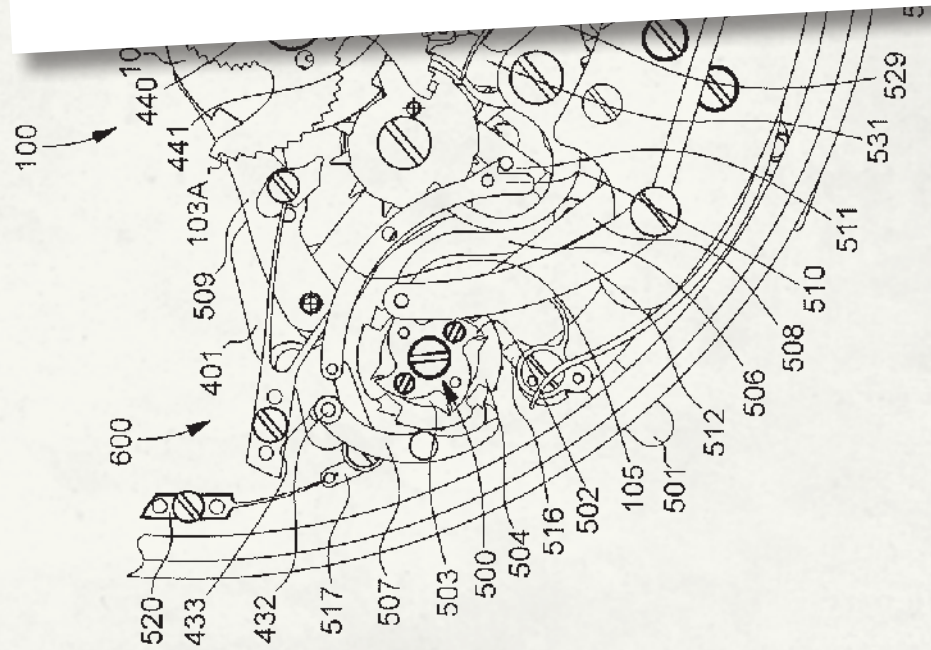 100
10
440
441
103A
509
401
600
520
433
432
517
507
503
500
504
516
502
105
501
512
506
508
510
511
531
529